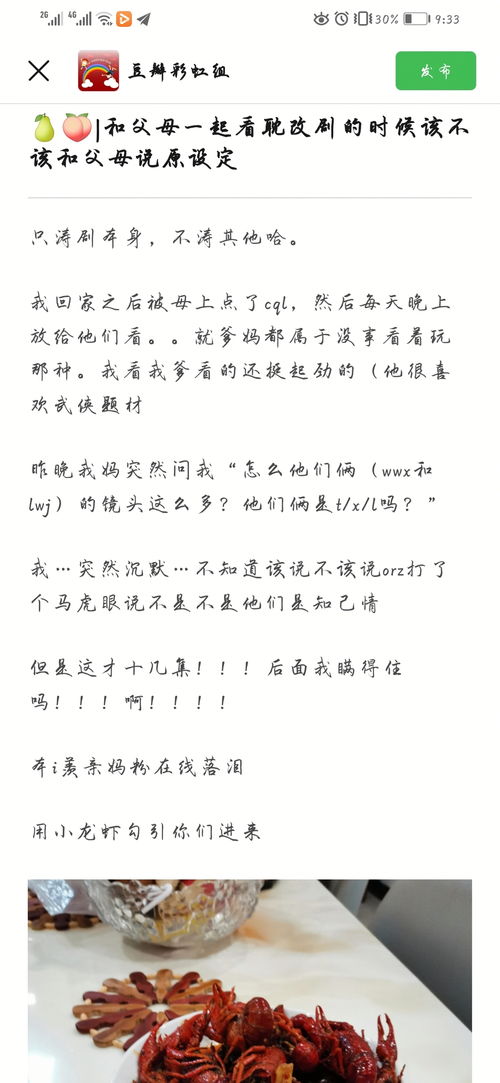 2G 4G 30% 9:33
豆瓣彩虹组
发布
🍐🍑|和父母一起看耽改剧的时候该不
该和父母说原设定
只涛剧本身，不涛其他哈。
我回家之后被母上点了cql，然后每天晚上
放给他们看。。就爹妈都属于没事看着玩
那种。我看我爹看的还挺起劲的（他很喜
欢武侠题材
昨晚我妈突然问我“怎么他们俩（wwx和
lwj）的镜头这么多？他们俩是t/x/l吗？”
我…突然沉默…不知道该说不该说orz打了
个马虎眼说不是不是他们是知己情
但是这才十几集！！！后面我瞒得住
吗！！！啊！！！！
本i羡亲妈粉在线落泪
用小龙虾勾引你们进来